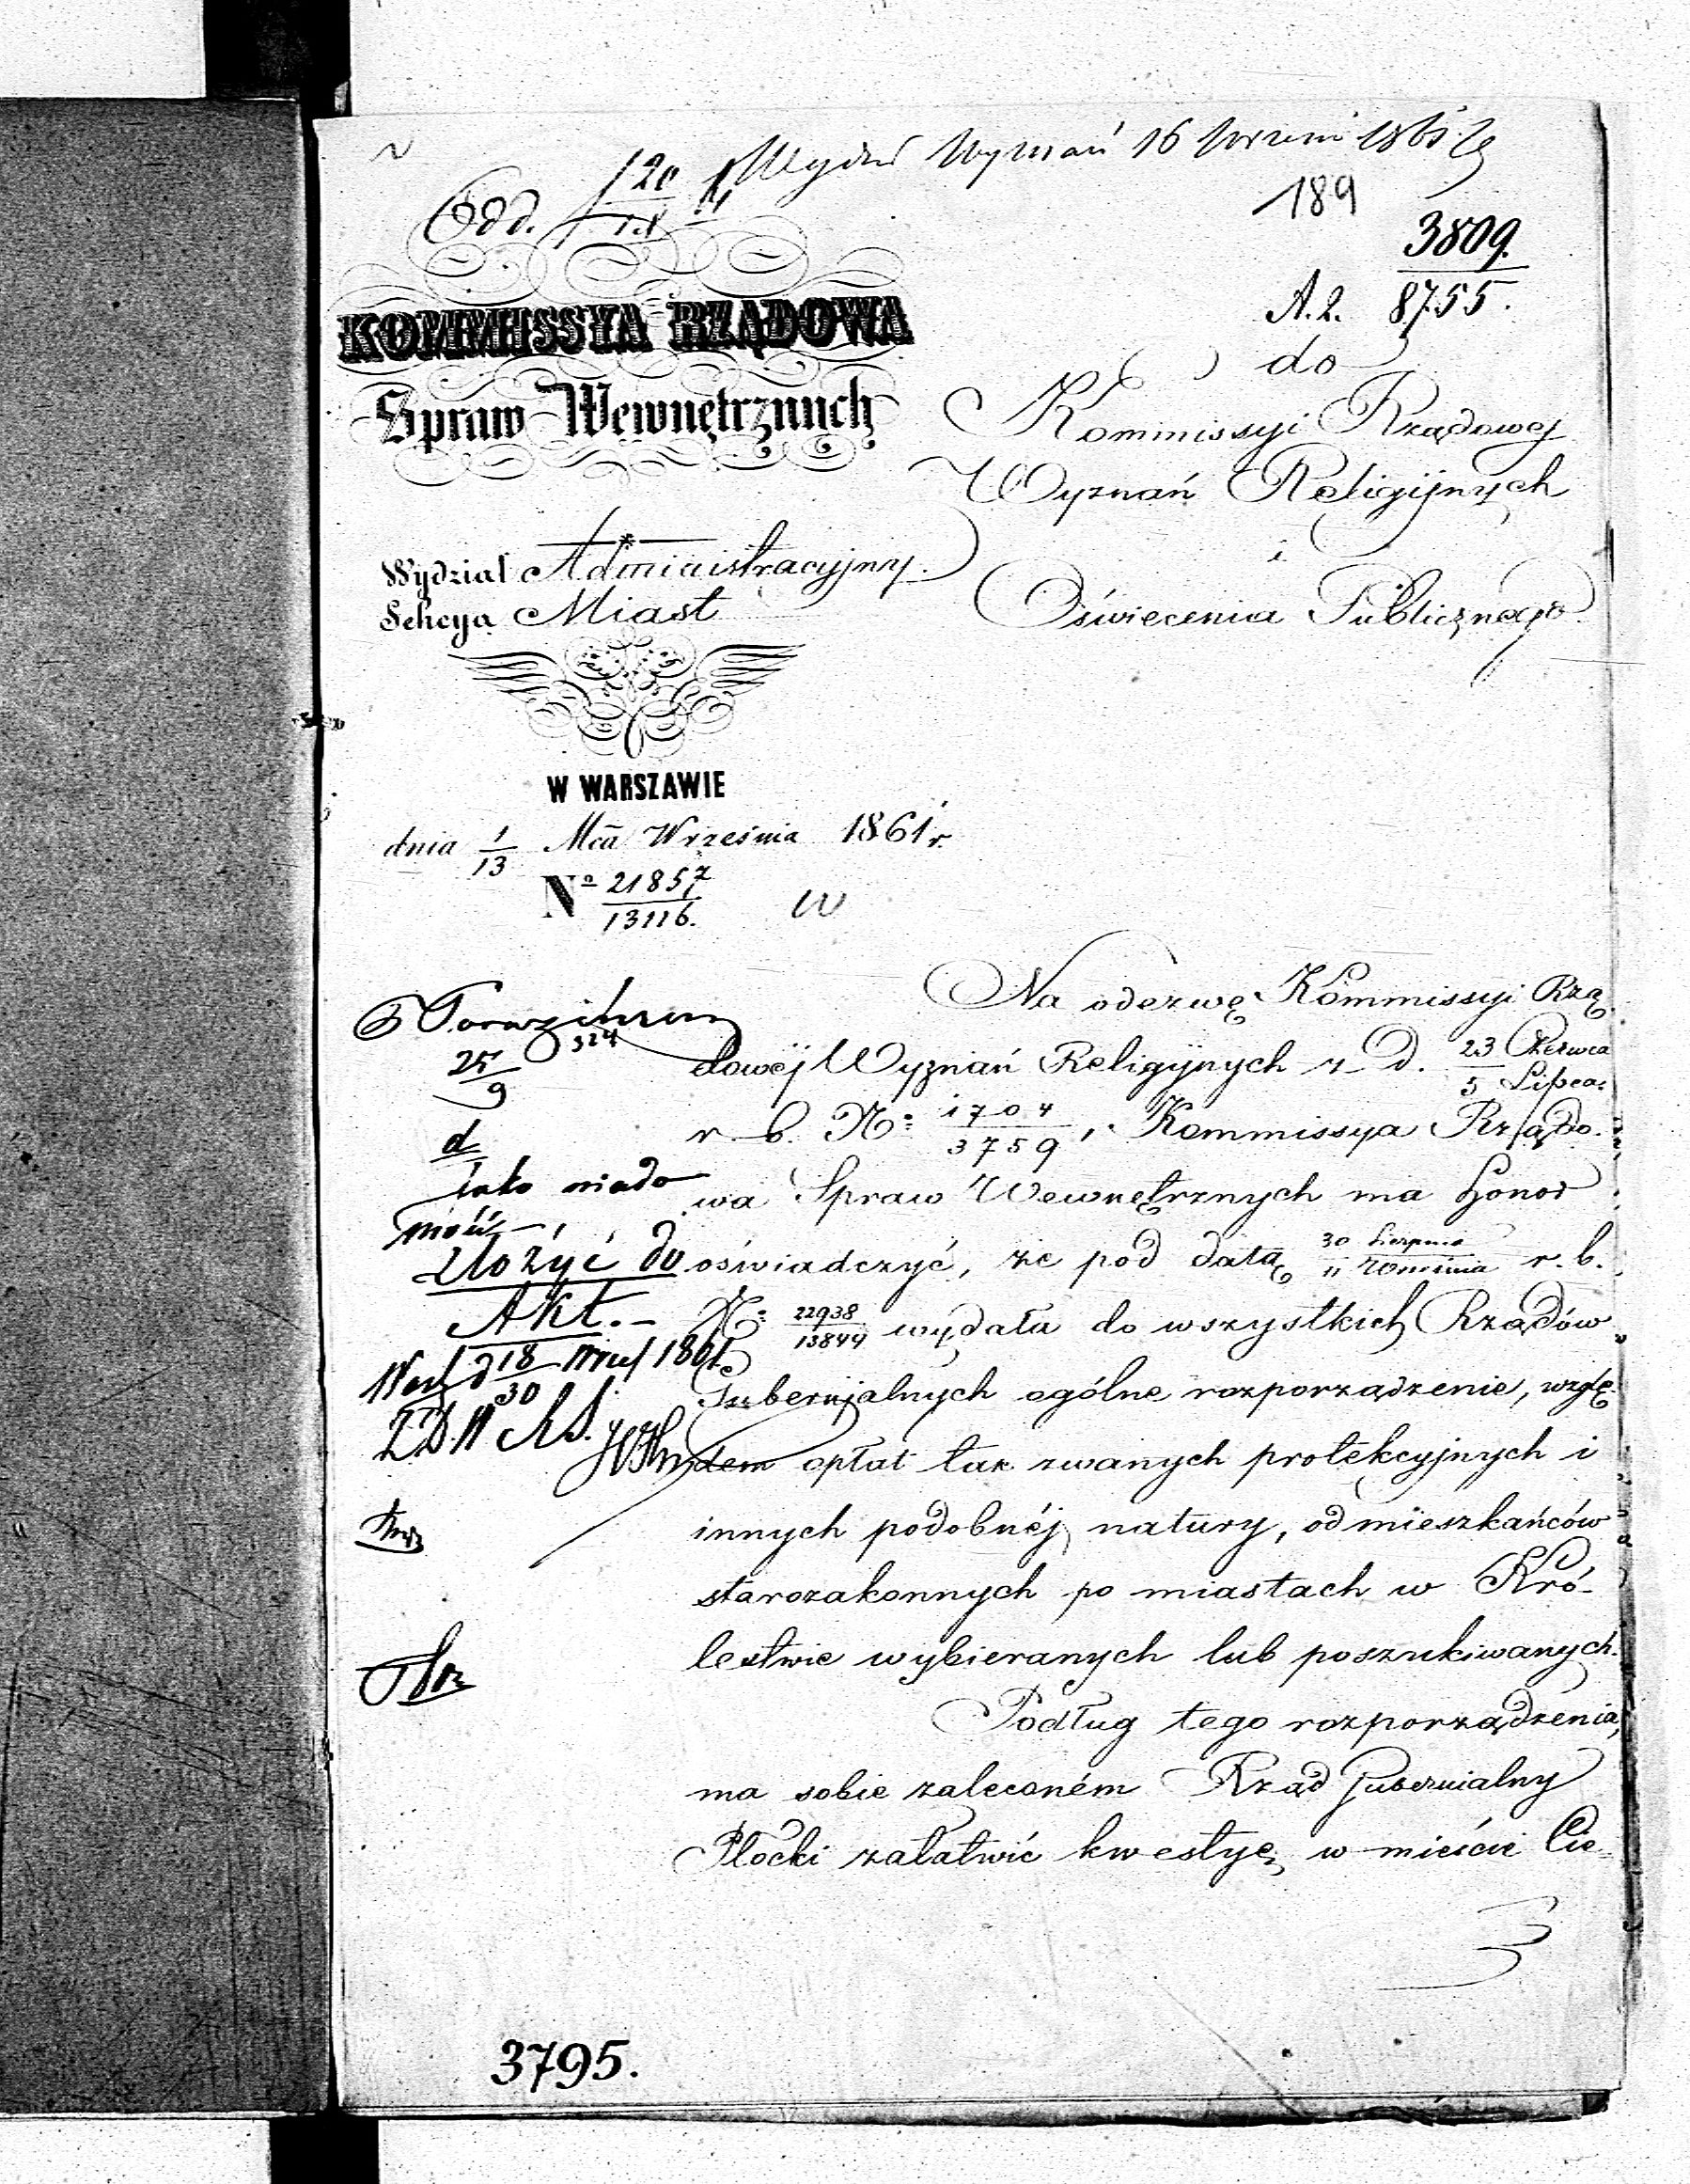 Wydz Wyznań 16 Wrześ 1861
189
Odd.
3809.
A.2. 8755.
KOMMISSYA RZĄDOWA
Spraw Wewnętrznych
do
Kommissyi Rządowej
Wyznań Religijnych
i
Oświecenia Publicznego.
Wydział Administracyjny.
Sekcya Miast
W WARSZAWIE
dnia 1/13 Mca Września 1861 r.
No 21857/13116.
Na odezwę Kommissyi Rzą
dowéj Wyznań Religijnych z D. 23 Czerwca/5 Lipca
r. b. No 1704/3759, Kommissya Rządo.
wa Spraw Wewnętrznych ma honor
oświadczyć, że pod datą 30 Sierpnia/11 Września r. b.
No 22938/13844 wydała do wszystkich Rządów
Gubernjalnych ogólne rozporządzenie, wzglę
dem opłat tak zwanych protekcyjnych i
innych podobnéj natury, od mieszkańców
starozakonnych po miastach w Kró-
lestwie wybieranych lub poszukiwanych.
Podług tego rozporządzenia,
ma sobie zaleconém Rząd Gubernialny
Płocki załatwić kwestyę, w mieście Cie-
324
25/9
d
jako wiado
mość
złożyć do
Akt.-
18/30 1861
3795.